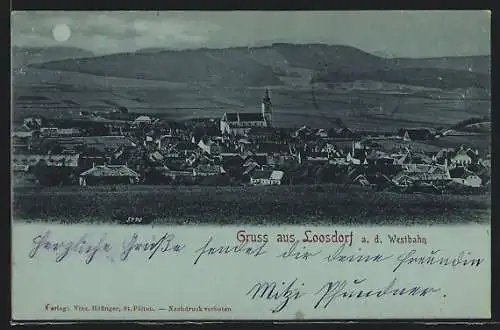 5990
Gruss aus Loosdorf a. d. Westbahn
Herzliche Grüße sendet dir deine Freundin
Mitzi Pfundner.
Verlag: Vinz. Höfinger, St. Pölten. — Nachdruck verboten